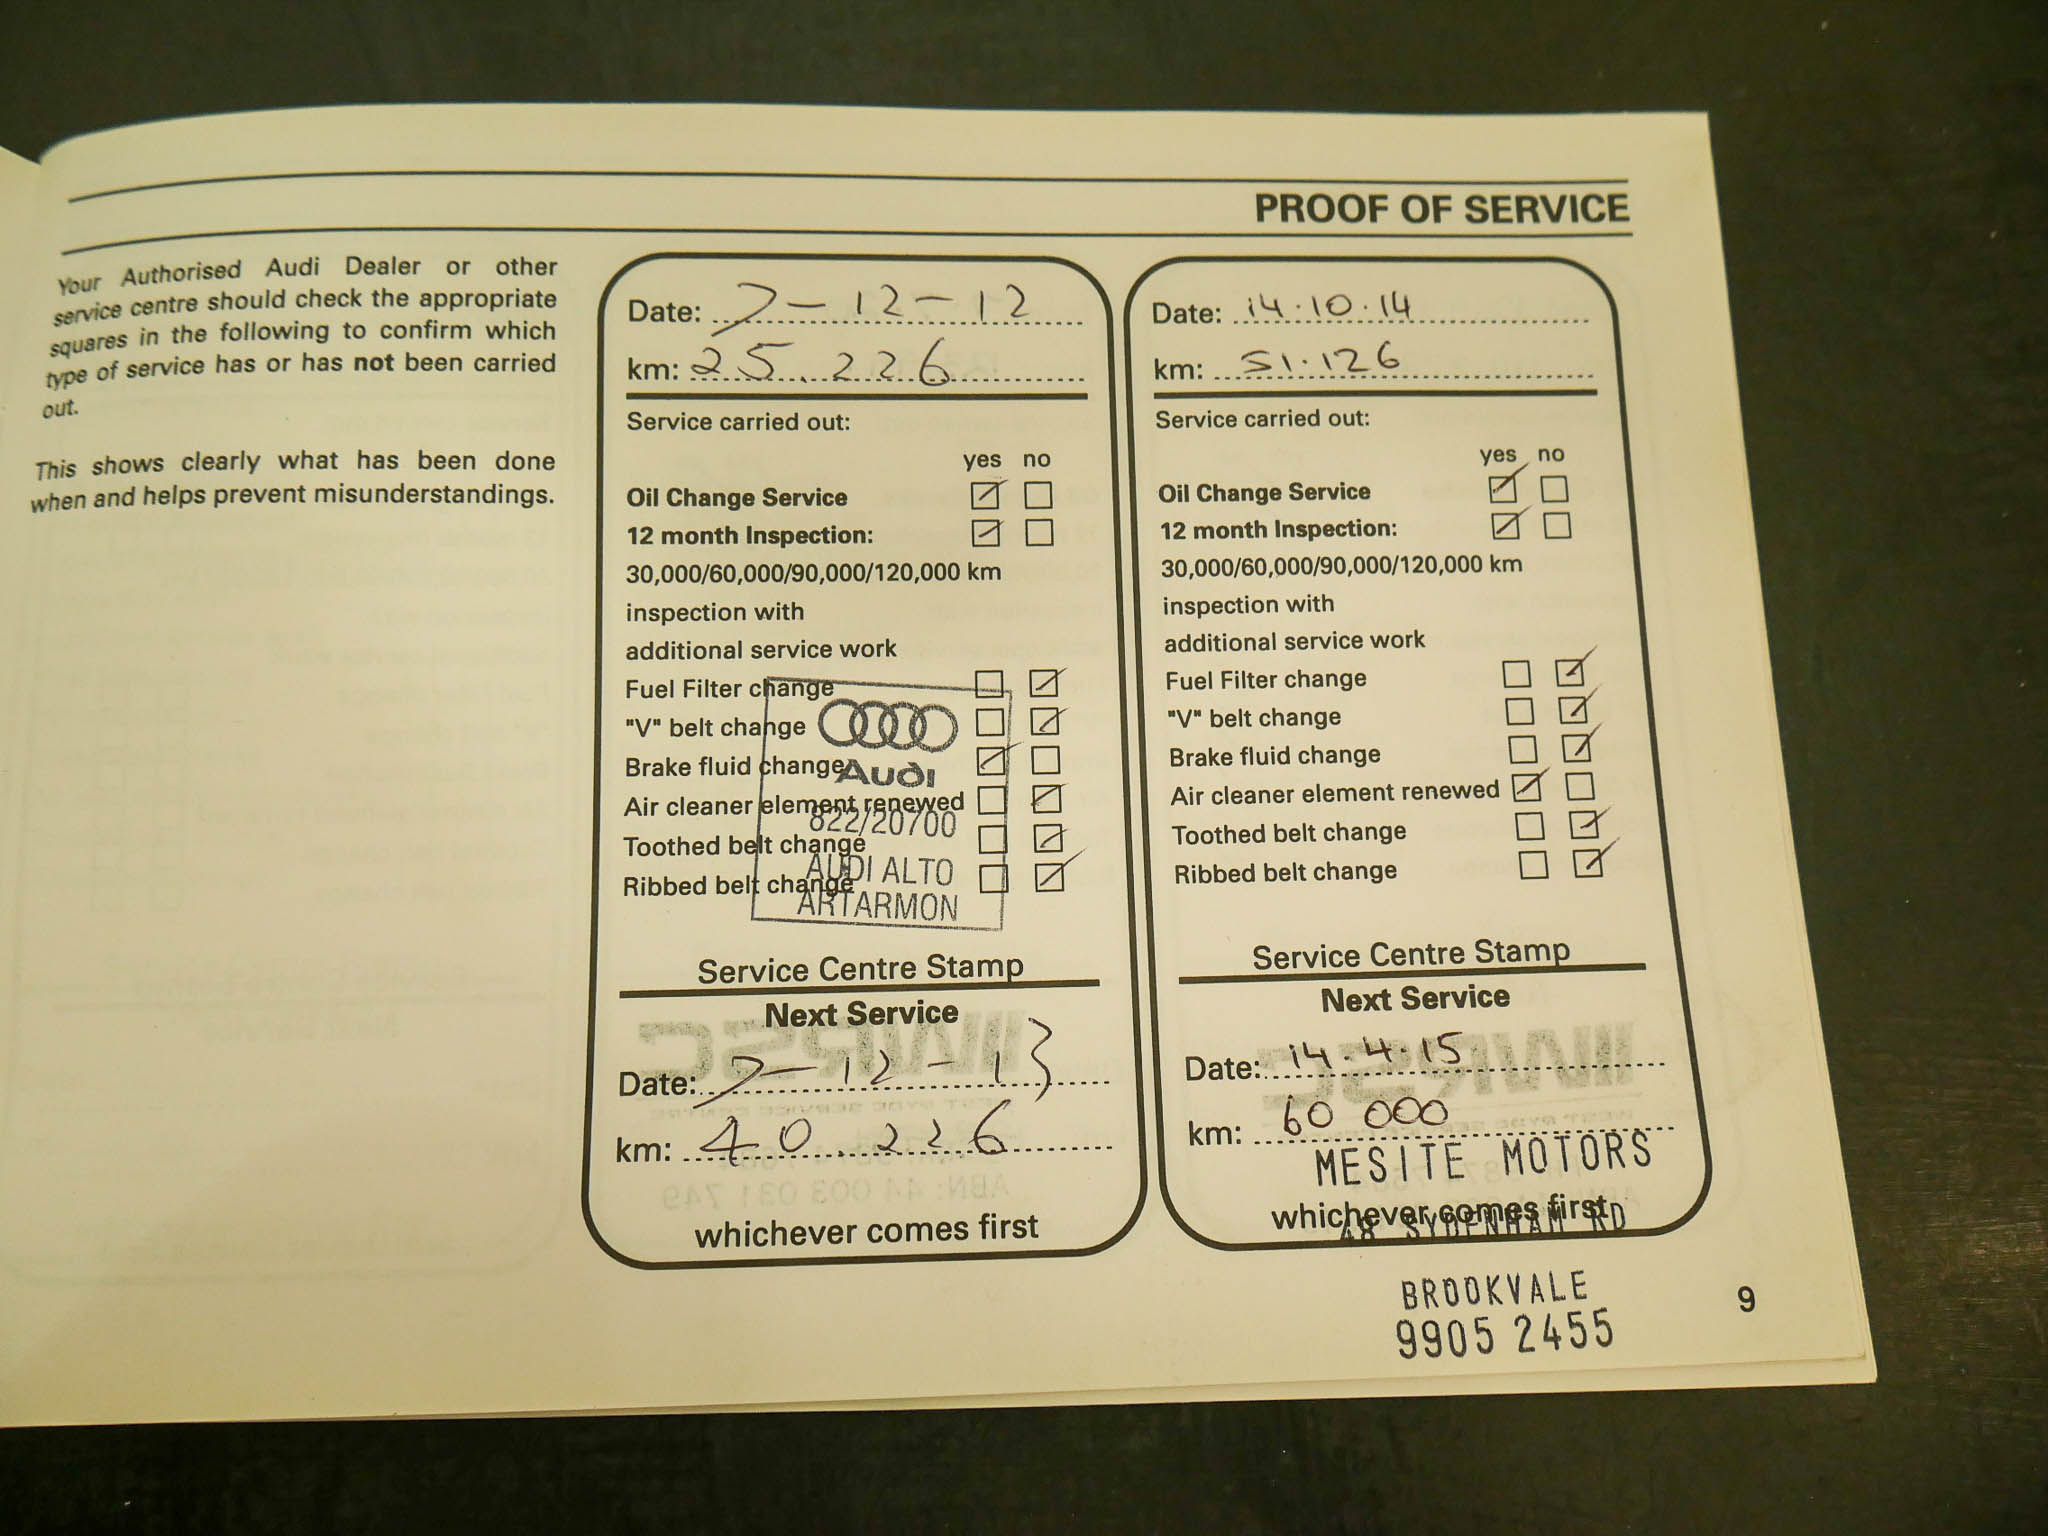 PROOF OF SERVICE
Your Authorised Audi Dealer or other
service centre should check the appropriate
squares in the following to confirm which
type of service has or has not been carried
out.
This shows clearly what has been done
when and helps prevent misunderstandings.
Date: 7-12-12
km: 25.226
Service carried out:
yes no
Oil Change Service
12 month Inspection:
30,000/60,000/90,000/120,000 km
inspection with
additional service work
Fuel Filter change
"V" belt change
Brake fluid change
Air cleaner element renewed
Toothed belt change
Ribbed belt change
Audi
822/20700
AUDI ALTO
ARTARMON
Service Centre Stamp
Next Service
Date: 7-12-13
km: 40.226
whichever comes first
Date: 14.10.14
km: 51.126
Service carried out:
yes no
Oil Change Service
12 month Inspection:
30,000/60,000/90,000/120,000 km
inspection with
additional service work
Fuel Filter change
"V" belt change
Brake fluid change
Air cleaner element renewed
Toothed belt change
Ribbed belt change
Service Centre Stamp
Next Service
Date: 14.4.15
km: 60 000
MESITE MOTORS
whichever comes first
48 SYDENHAM RD
BROOKVALE
9905 2455
9